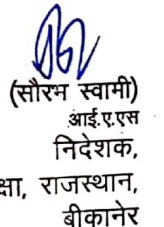 (सौरभ स्वामी)
आई.ए.एस
निदेशक,
राजस्थान,
बीकानेर